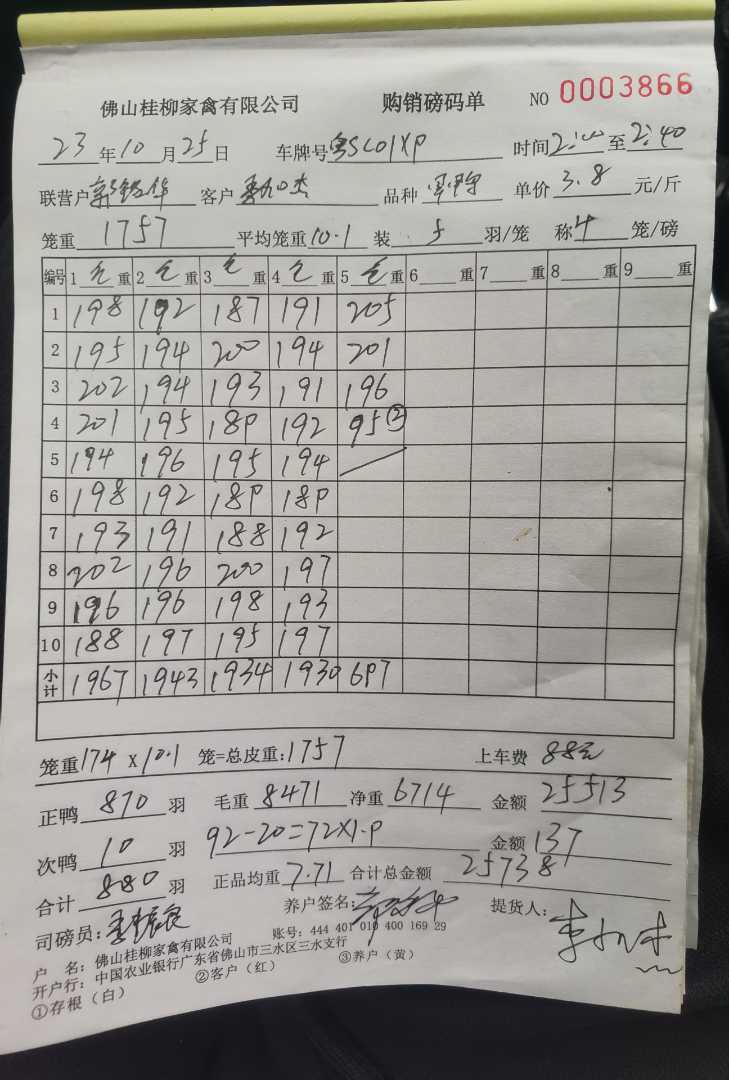 佛山桂柳家禽有限公司 购销磅码单 NO 0003866
23年10月25日 车牌号粤SC01XP 时间2:00至2:40
联营户 客户 品种 单价3.8元/斤
笼重1757 平均笼重10.1 装5羽/笼 称4笼/磅
编号 1毛重 2毛重 3毛重 4毛重 5毛重 6 重 7 重 8 重 9 重
1 198 192 187 191 205
2 195 194 200 194 201
3 202 194 193 191 196
4 201 195 189 192 95②
5 194 196 195 194
6 198 192 189 189
7 193 191 188 192
8 202 196 200 197
9 196 196 198 193
10 188 197 195 197
小计 1967 1943 1934 1930 697
笼重174x10.1 笼=总皮重:1757 上车费 88元
正鸭870羽 毛重8471 净重6714 金额25513
次鸭10羽 92-20=72X1.9 金额137
合计880羽 正品均重7.71 合计总金额25738
司磅员: 养户签名: 提货人:
户 名:佛山桂柳家禽有限公司 账号:444 401 010 400 169 29
开户行:中国农业银行广东省佛山市三水区三水支行
①存根(白) ②客户(红) ③养户(黄)